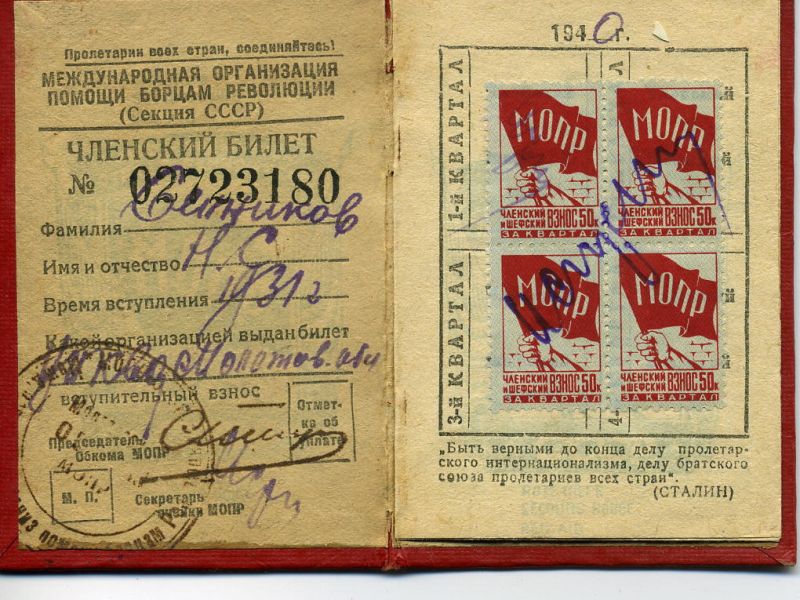 Пролетарии всех стран, соединяйтесь!
МЕЖДУНАРОДНАЯ ОРГАНИЗАЦИЯ
ПОМОЩИ БОРЦАМ РЕВОЛЮЦИИ
(Секция СССР)
ЧЛЕНСКИЙ БИЛЕТ
№ 02723180
Фамилия
Имя и отчество Н. С
Время вступления 1931 г
Какой организацией выдан билет
Молотов. обл
вступительный взнос
Отмет-
ка об
уплате
Председатель
Обкома МОПР
М. П.
Секретарь
ячейки МОПР
1940 г.
1-й КВАРТАЛ
3-й КВАРТАЛ
МОПР
ЧЛЕНСКИЙ И ШЕФСКИЙ ВЗНОС 50к
ЗА КВАРТАЛ
МОПР
ЧЛЕНСКИЙ И ШЕФСКИЙ ВЗНОС 50к
ЗА КВАРТАЛ
МОПР
ЧЛЕНСКИЙ И ШЕФСКИЙ ВЗНОС 50к
ЗА КВАРТАЛ
МОПР
ЧЛЕНСКИЙ И ШЕФСКИЙ ВЗНОС 50к
ЗА КВАРТАЛ
„Быть верными до конца делу пролетар-
ского интернационализма, делу братского
союза пролетариев всех стран".
(СТАЛИН)